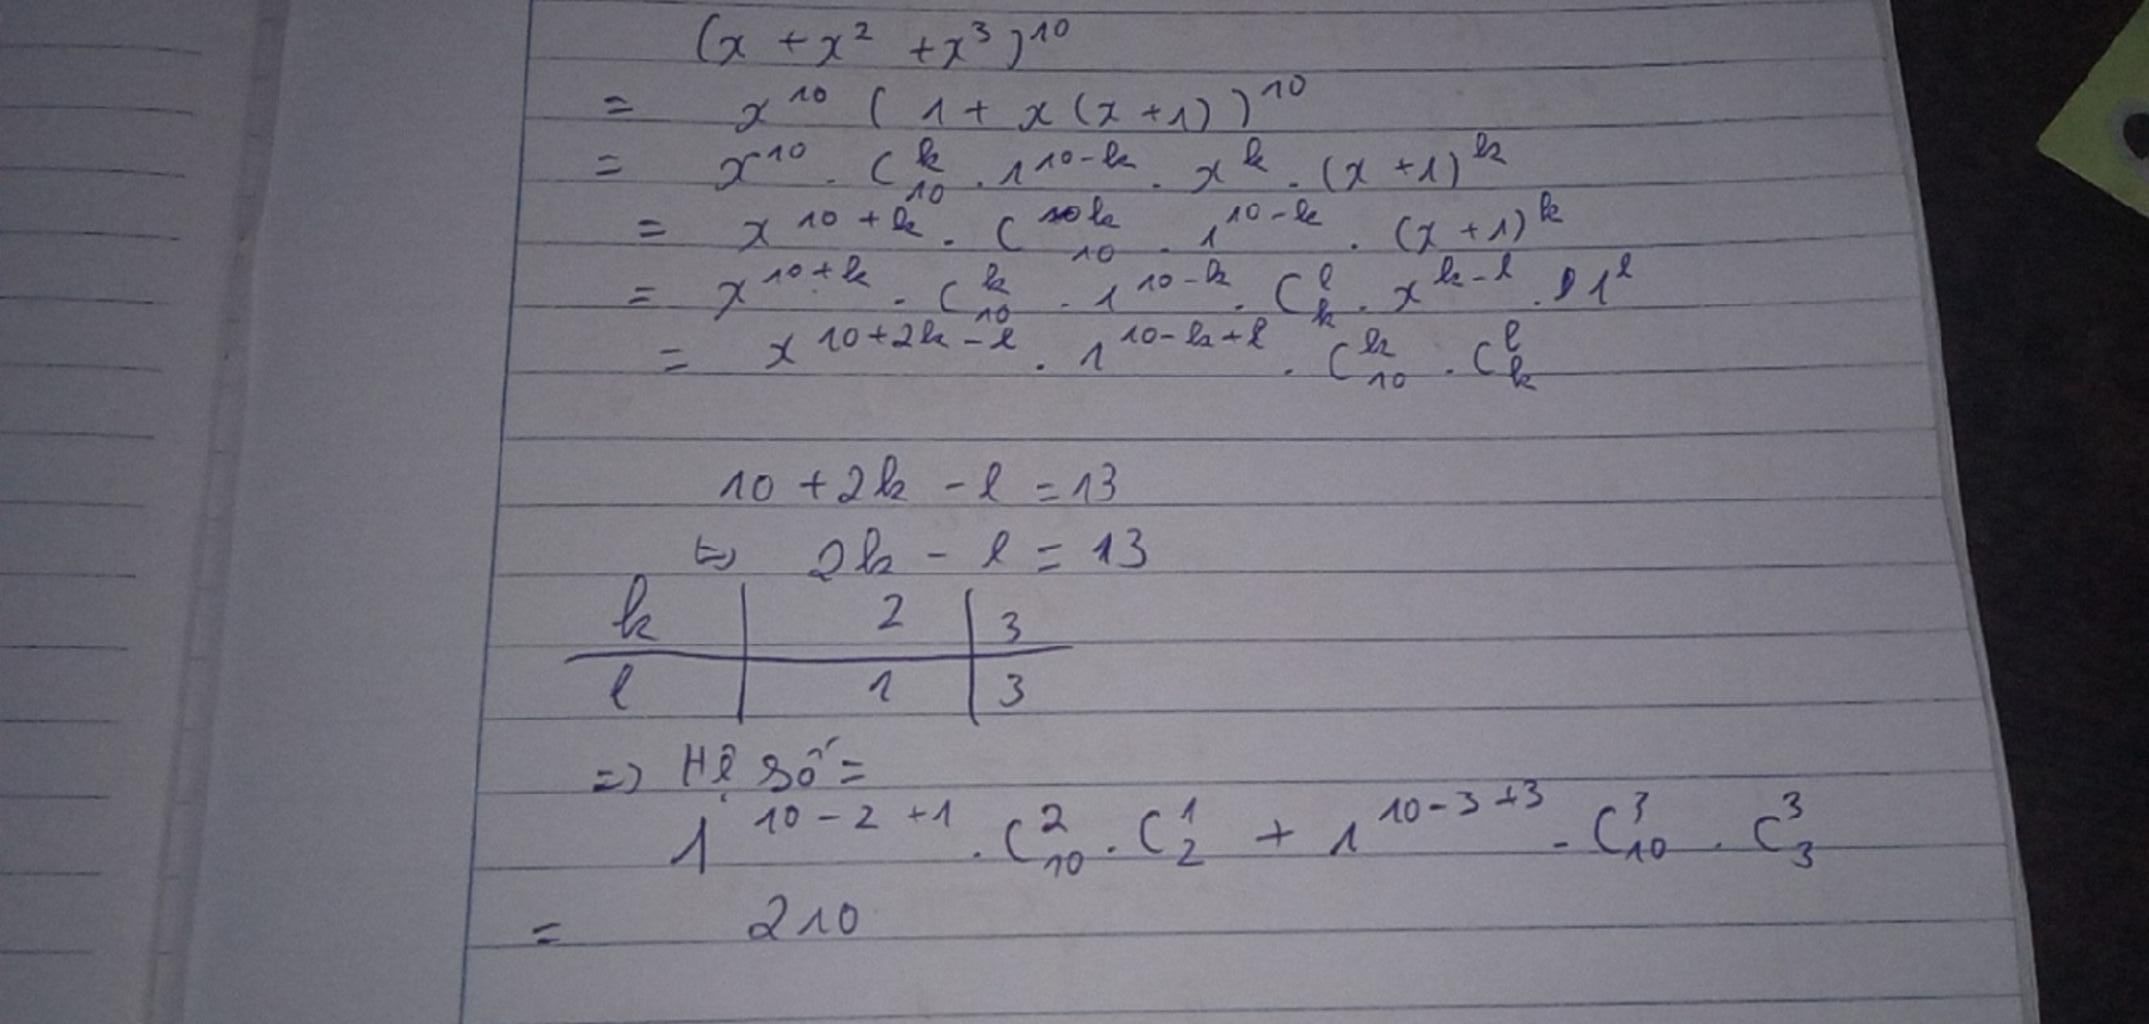 (x + x² + x³)¹⁰
= x¹⁰ (1 + x(x+1))¹⁰
= x¹⁰ . C₁₀ᵏ . 1¹⁰⁻ᵏ . xᵏ . (x+1)ᵏ
= x¹⁰⁺ᵏ . C₁₀ᵏ . 1¹⁰⁻ᵏ . (x+1)ᵏ
= x¹⁰⁺ᵏ . C₁₀ᵏ . 1¹⁰⁻ᵏ . Cₖˡ . xᵏ⁻ˡ . 1ˡ
= x¹⁰⁺²ᵏ⁻ˡ . 1¹⁰⁻ᵏ⁺ˡ . C₁₀ᵏ . Cₖˡ
10 + 2k - l = 13
⇔ 2k - l = 13
k | 2 | 3
l | 1 | 3
=> Hệ số =
1¹⁰⁻²⁺¹ . C₁₀² . C₂¹ + 1¹⁰⁻³⁺³ . C₁₀³ . C₃³
= 210